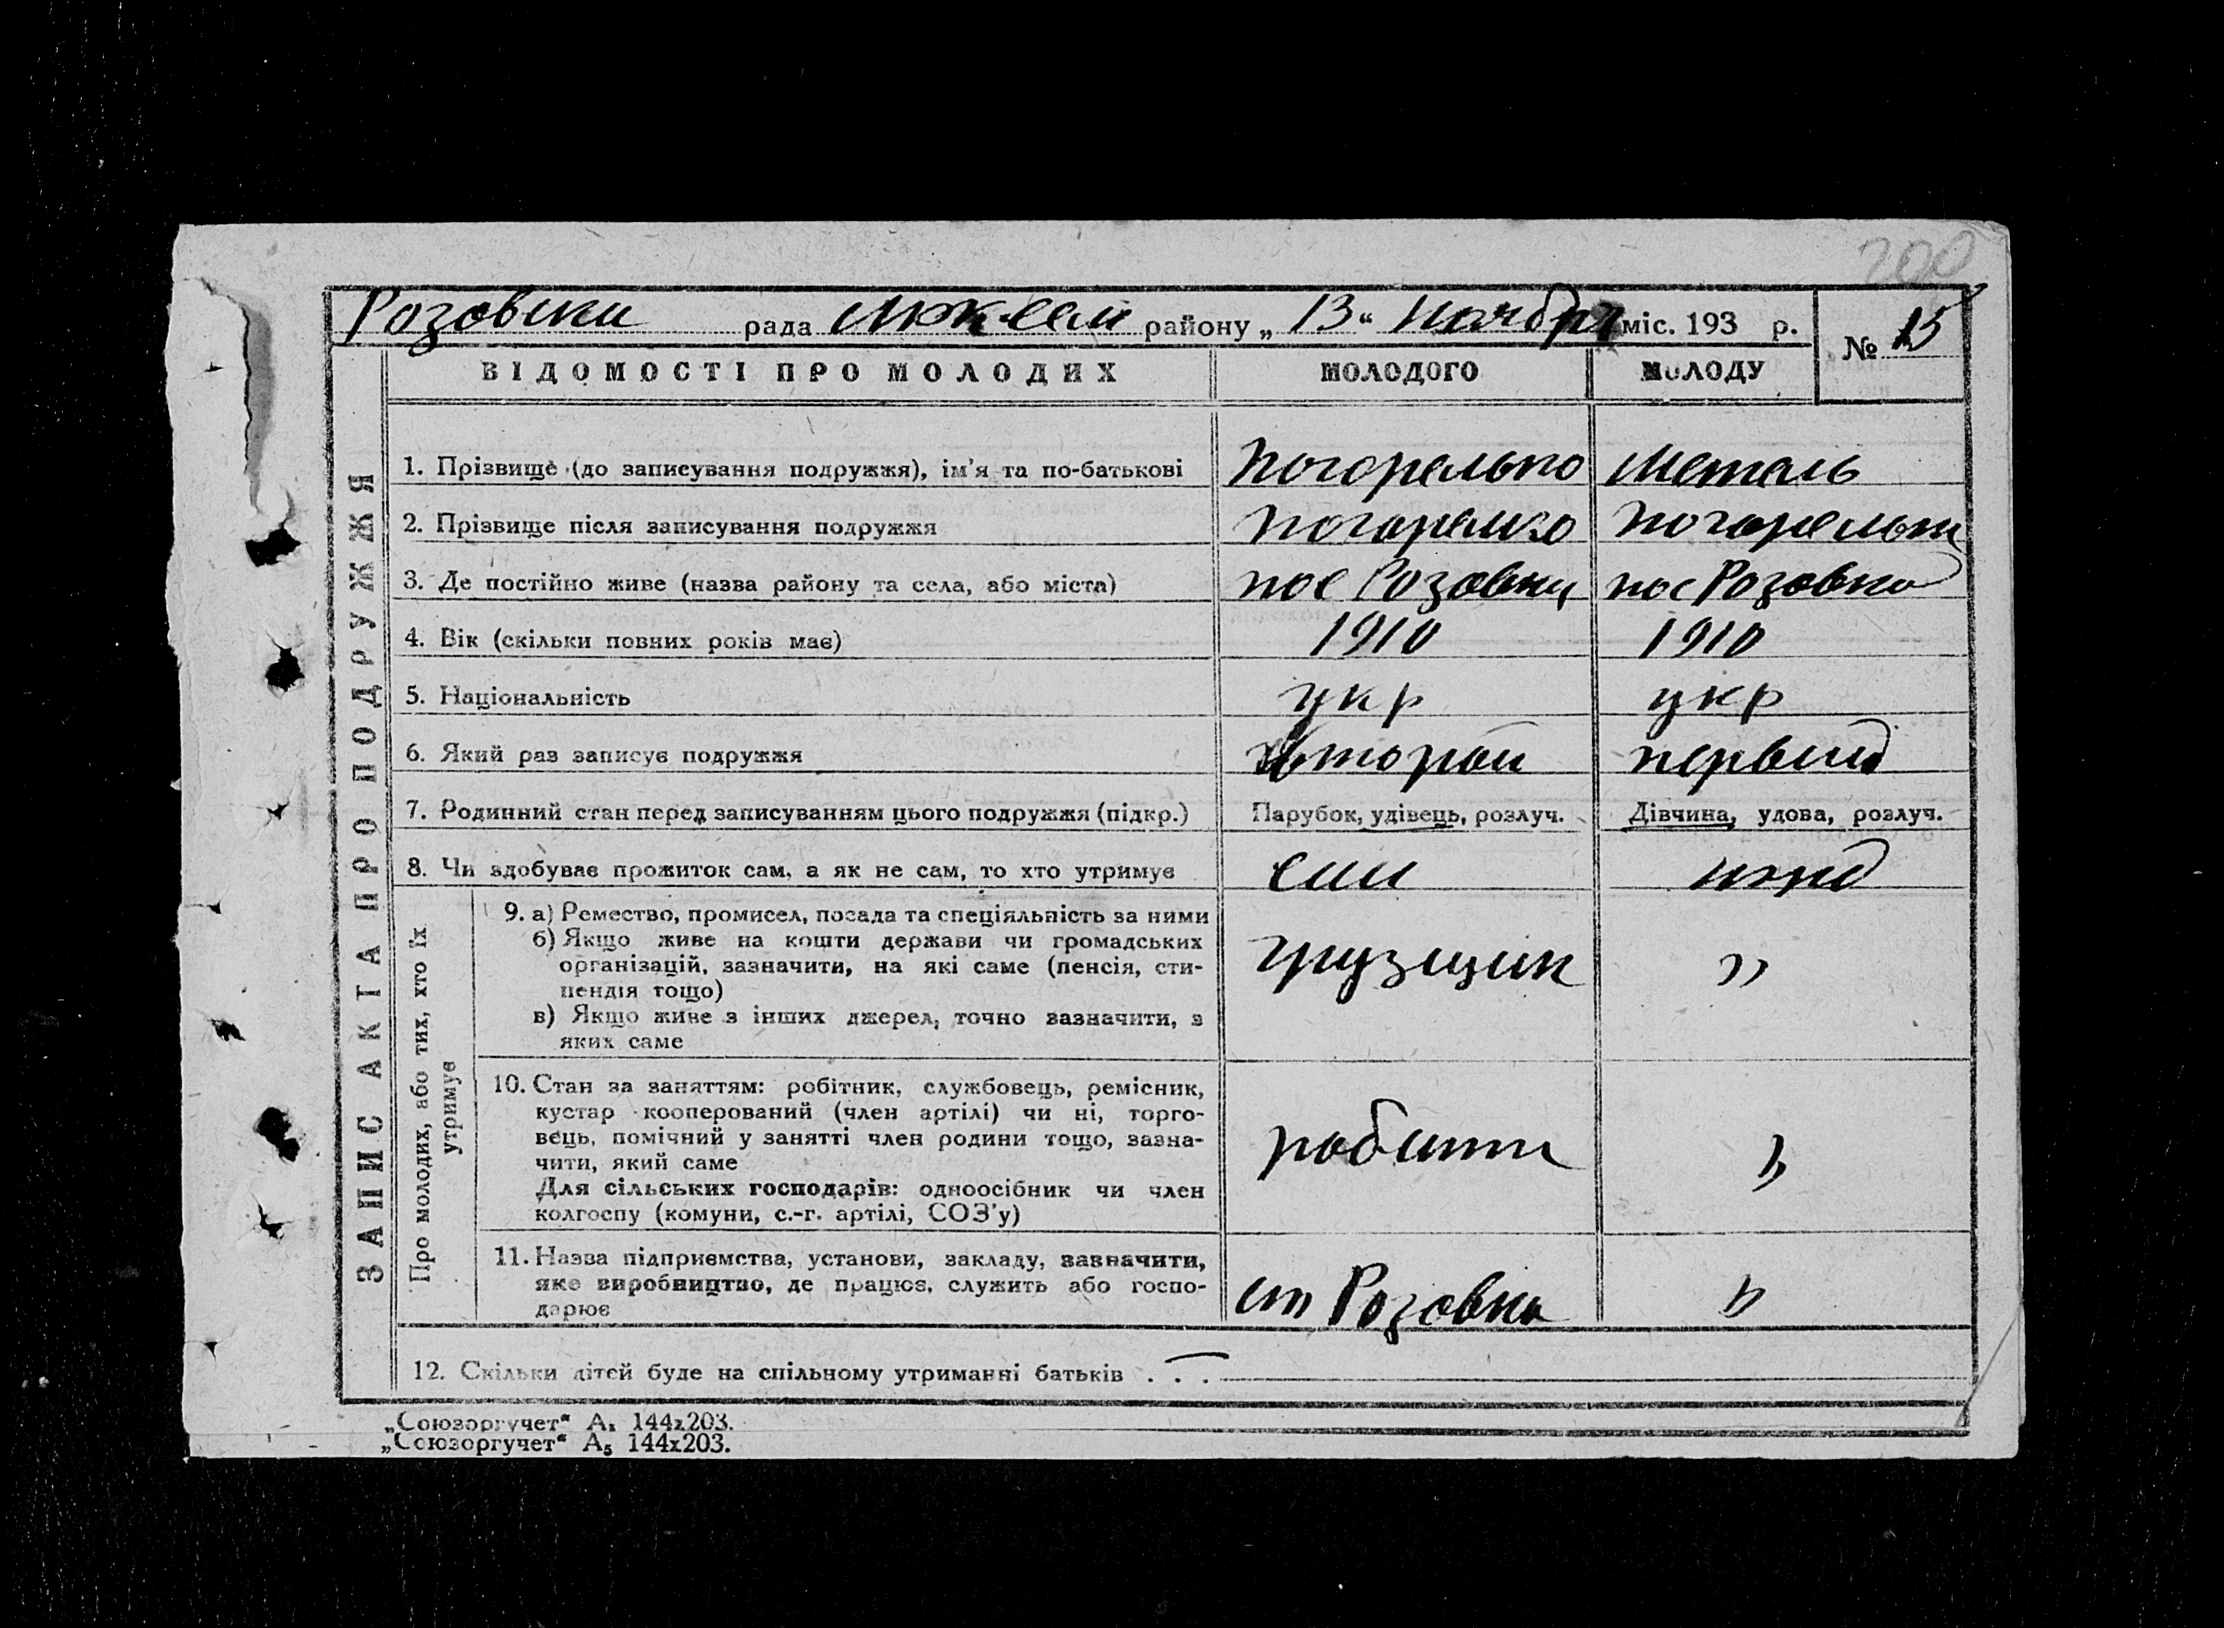 200
Розовски рада Люкsем району „ 13 “ Ноября міс. 193 р.
№ 15
ВІДОМОСТІ ПРО МОЛОДИХ МОЛОДОГО МОЛОДУ
ЗАПИС АКТА ПРО ПОДРУЖЖЯ
1. Прізвище (до записування подружжя), ім’я та по-батькові Погорелько Метель
2. Прізвище після записування подружжя Погорелко Погорельк
3. Де постійно живе (назва району та села, або міста) пос Розовки пос Розовка
4. Вік (скільки повних років має) 1910 1910
5. Національність укр укр
6. Який раз записує подружжя второй первый
7. Родинний стан перед записуванням цього подружжя (підкр.) Парубок, удівець, розлуч. Дівчина, удова, розлуч.
8. Чи здобуває прожиток сам, а як не сам, то хто утримує сам
Про молодих, або тих, хто їх
утримує
9. а) Ремество, промисел, посада та спеціяльність за ними
б) Якщо живе на кошти держави чи громадських
організацій, зазначити, на які саме (пенсія, сти-
пендія тощо)
в) Якщо живе з інших джерел, точно зазначити, з
яких саме
грузщик "
10. Стан за заняттям: робітник, службовець, ремісник,
кустар кооперований (член артілі) чи ні, торго-
вець, помічний у занятті член родини тощо, зазна-
чити, який саме
Для сільських господарів: одноосібник чи член
колгоспу (комуни, с.-г. артілі, СОЗ’у)
робитн "
11. Назва підприємства, установи, закладу, зазначити,
яке виробництво, де працює, служить або госпо-
дарює
ст Розовка "
12. Скільки дітей буде на спільному утриманні батьків . . . —
„Союзоргучет“ А₅ 144х203.
„Союзоргучет“ А₅ 144х203.